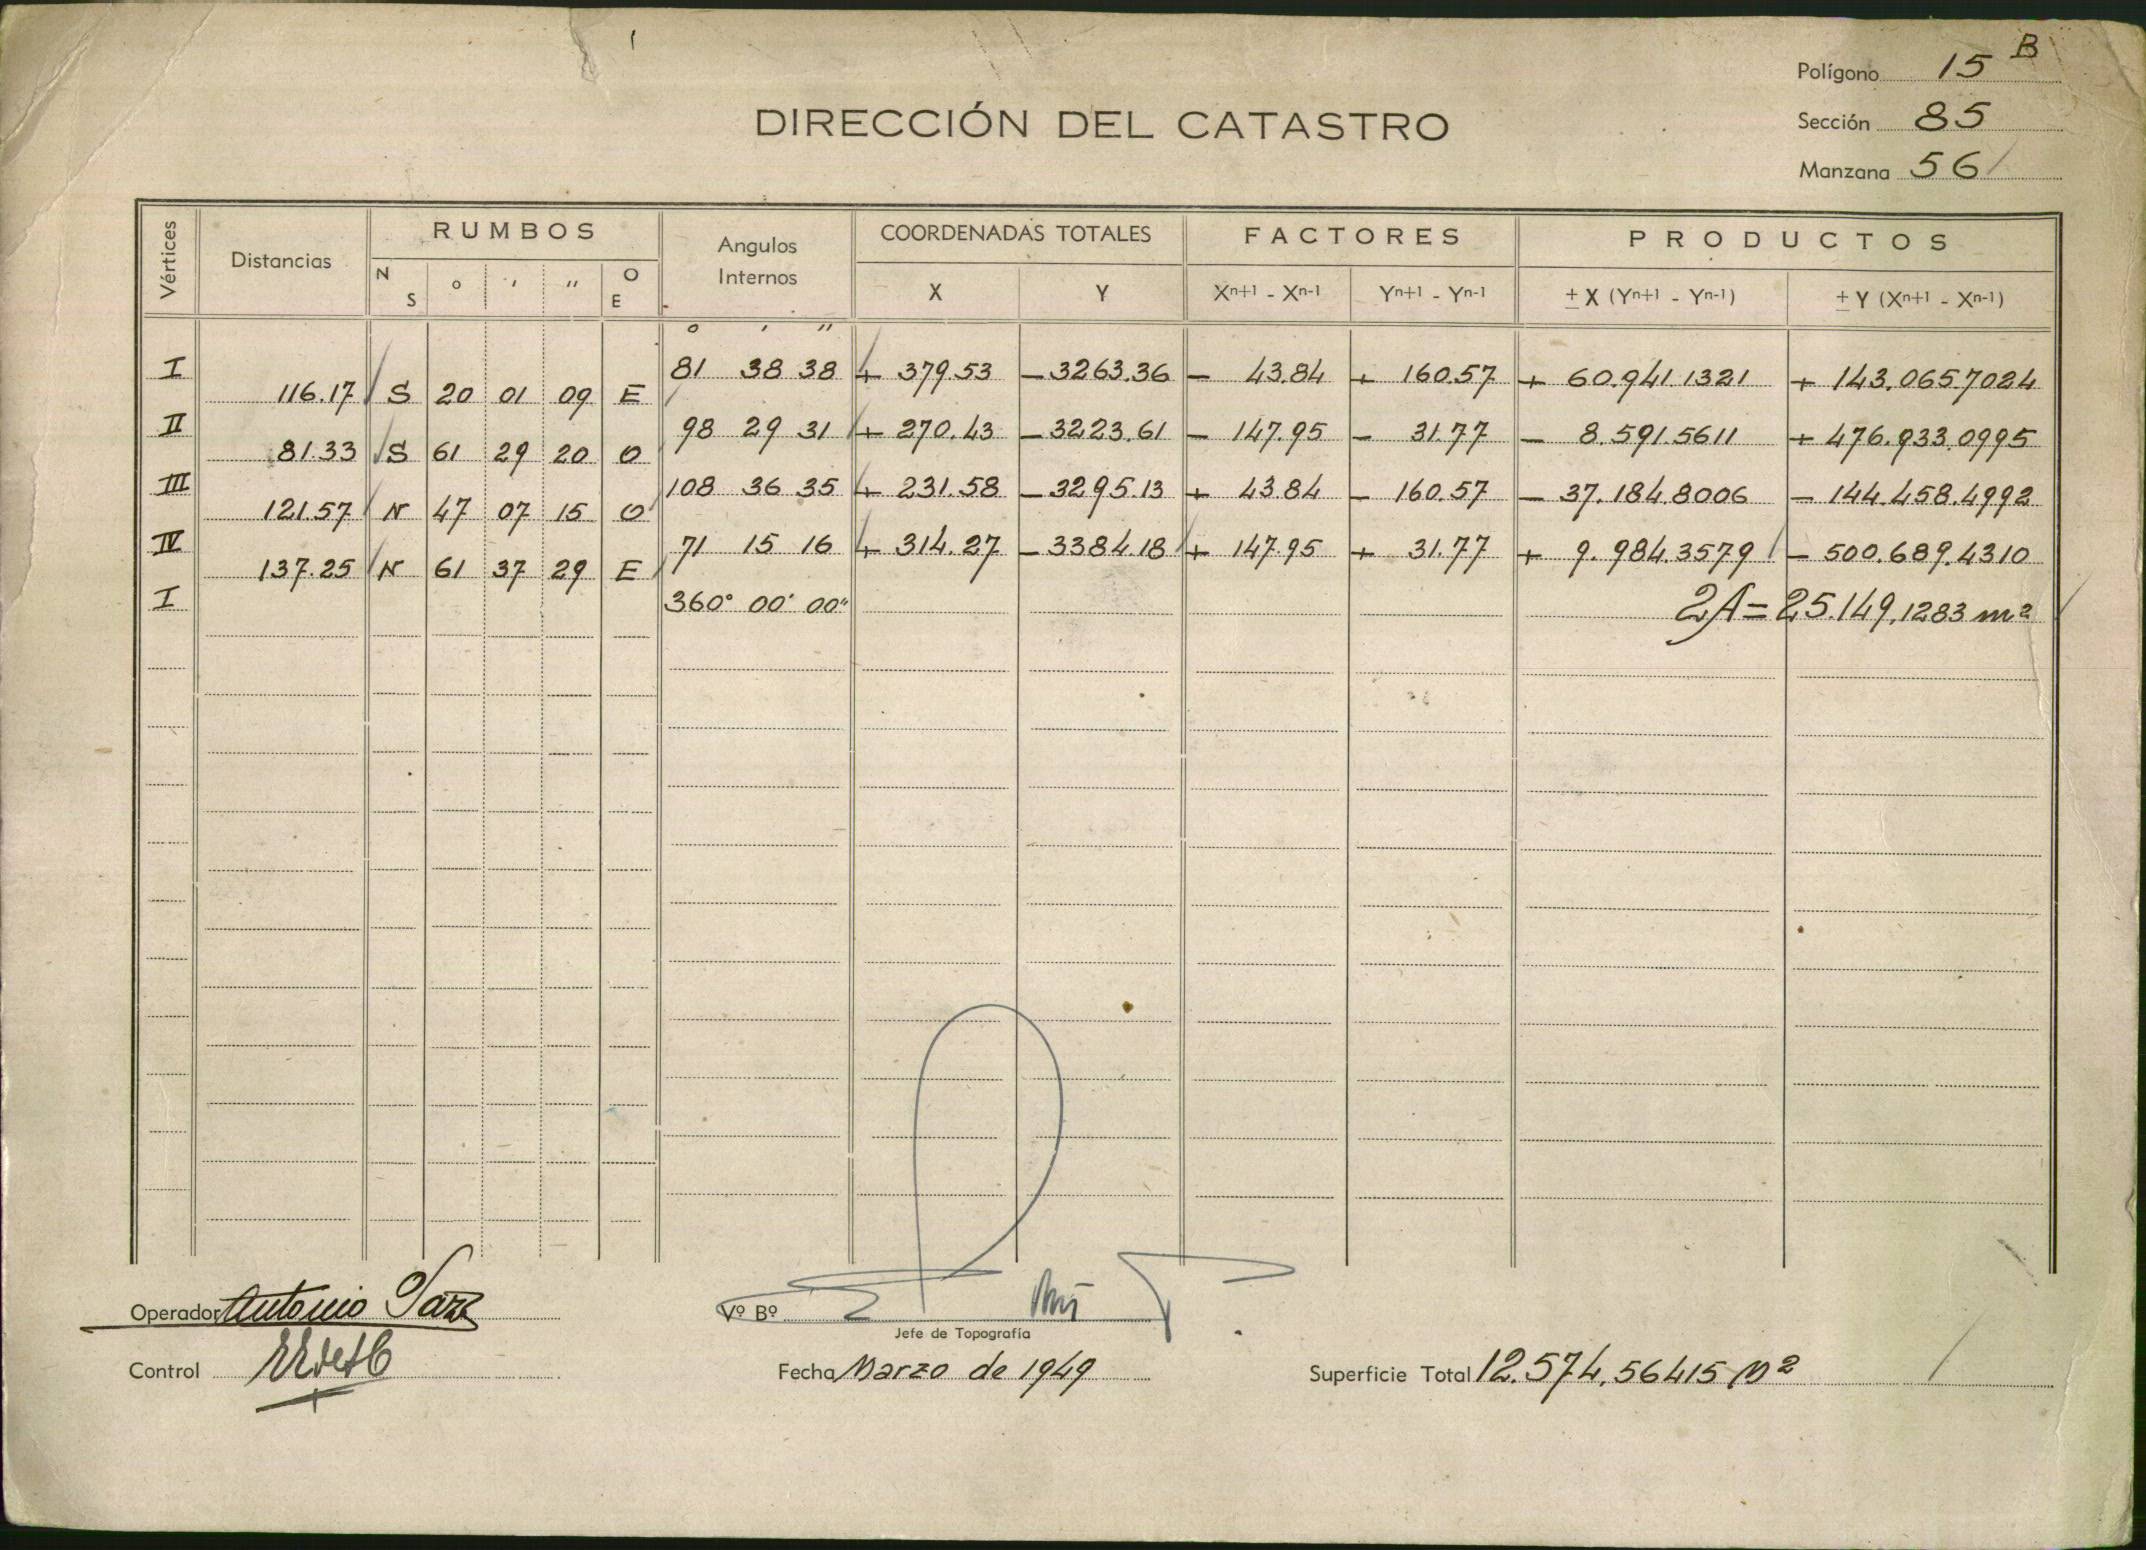 Polígono 15 B
DIRECCIÓN DEL CATASTRO
Sección 85
Manzana 56
Vértices Distancias RUMBOS Angulos Internos COORDENADAS TOTALES FACTORES PRODUCTOS
N S ° ' " O E X Y Xn+1 - Xn-1 Yn+1 - Yn-1 ± X (Yn+1 - Yn-1) ± Y (Xn+1 - Xn-1)
° ' "
I 81 38 38 + 379.53 - 3263.36 - 43.84 + 160.57 + 60.941.1321 + 143.065.7024
116.17 S 20 01 09 E
II 98 29 31 + 270.43 - 3223.61 - 147.95 - 31.77 - 8.591.5611 + 476.933.0995
81.33 S 61 29 20 O
III 108 36 35 + 231.58 - 3295.13 + 43.84 - 160.57 - 37.184.8006 - 144.458.4992
121.57 N 47 07 15 O
IV 71 15 16 + 314.27 - 3384.18 + 147.95 + 31.77 + 9.984.3579 - 500.689.4310
137.25 N 61 37 29 E
I 360° 00' 00" 2A = 25.149,1283 m2
Operador Antonio
Vº Bº
Jefe de Topografía
Control
Fecha Marzo de 1949
Superficie Total 12.574,56415 M2